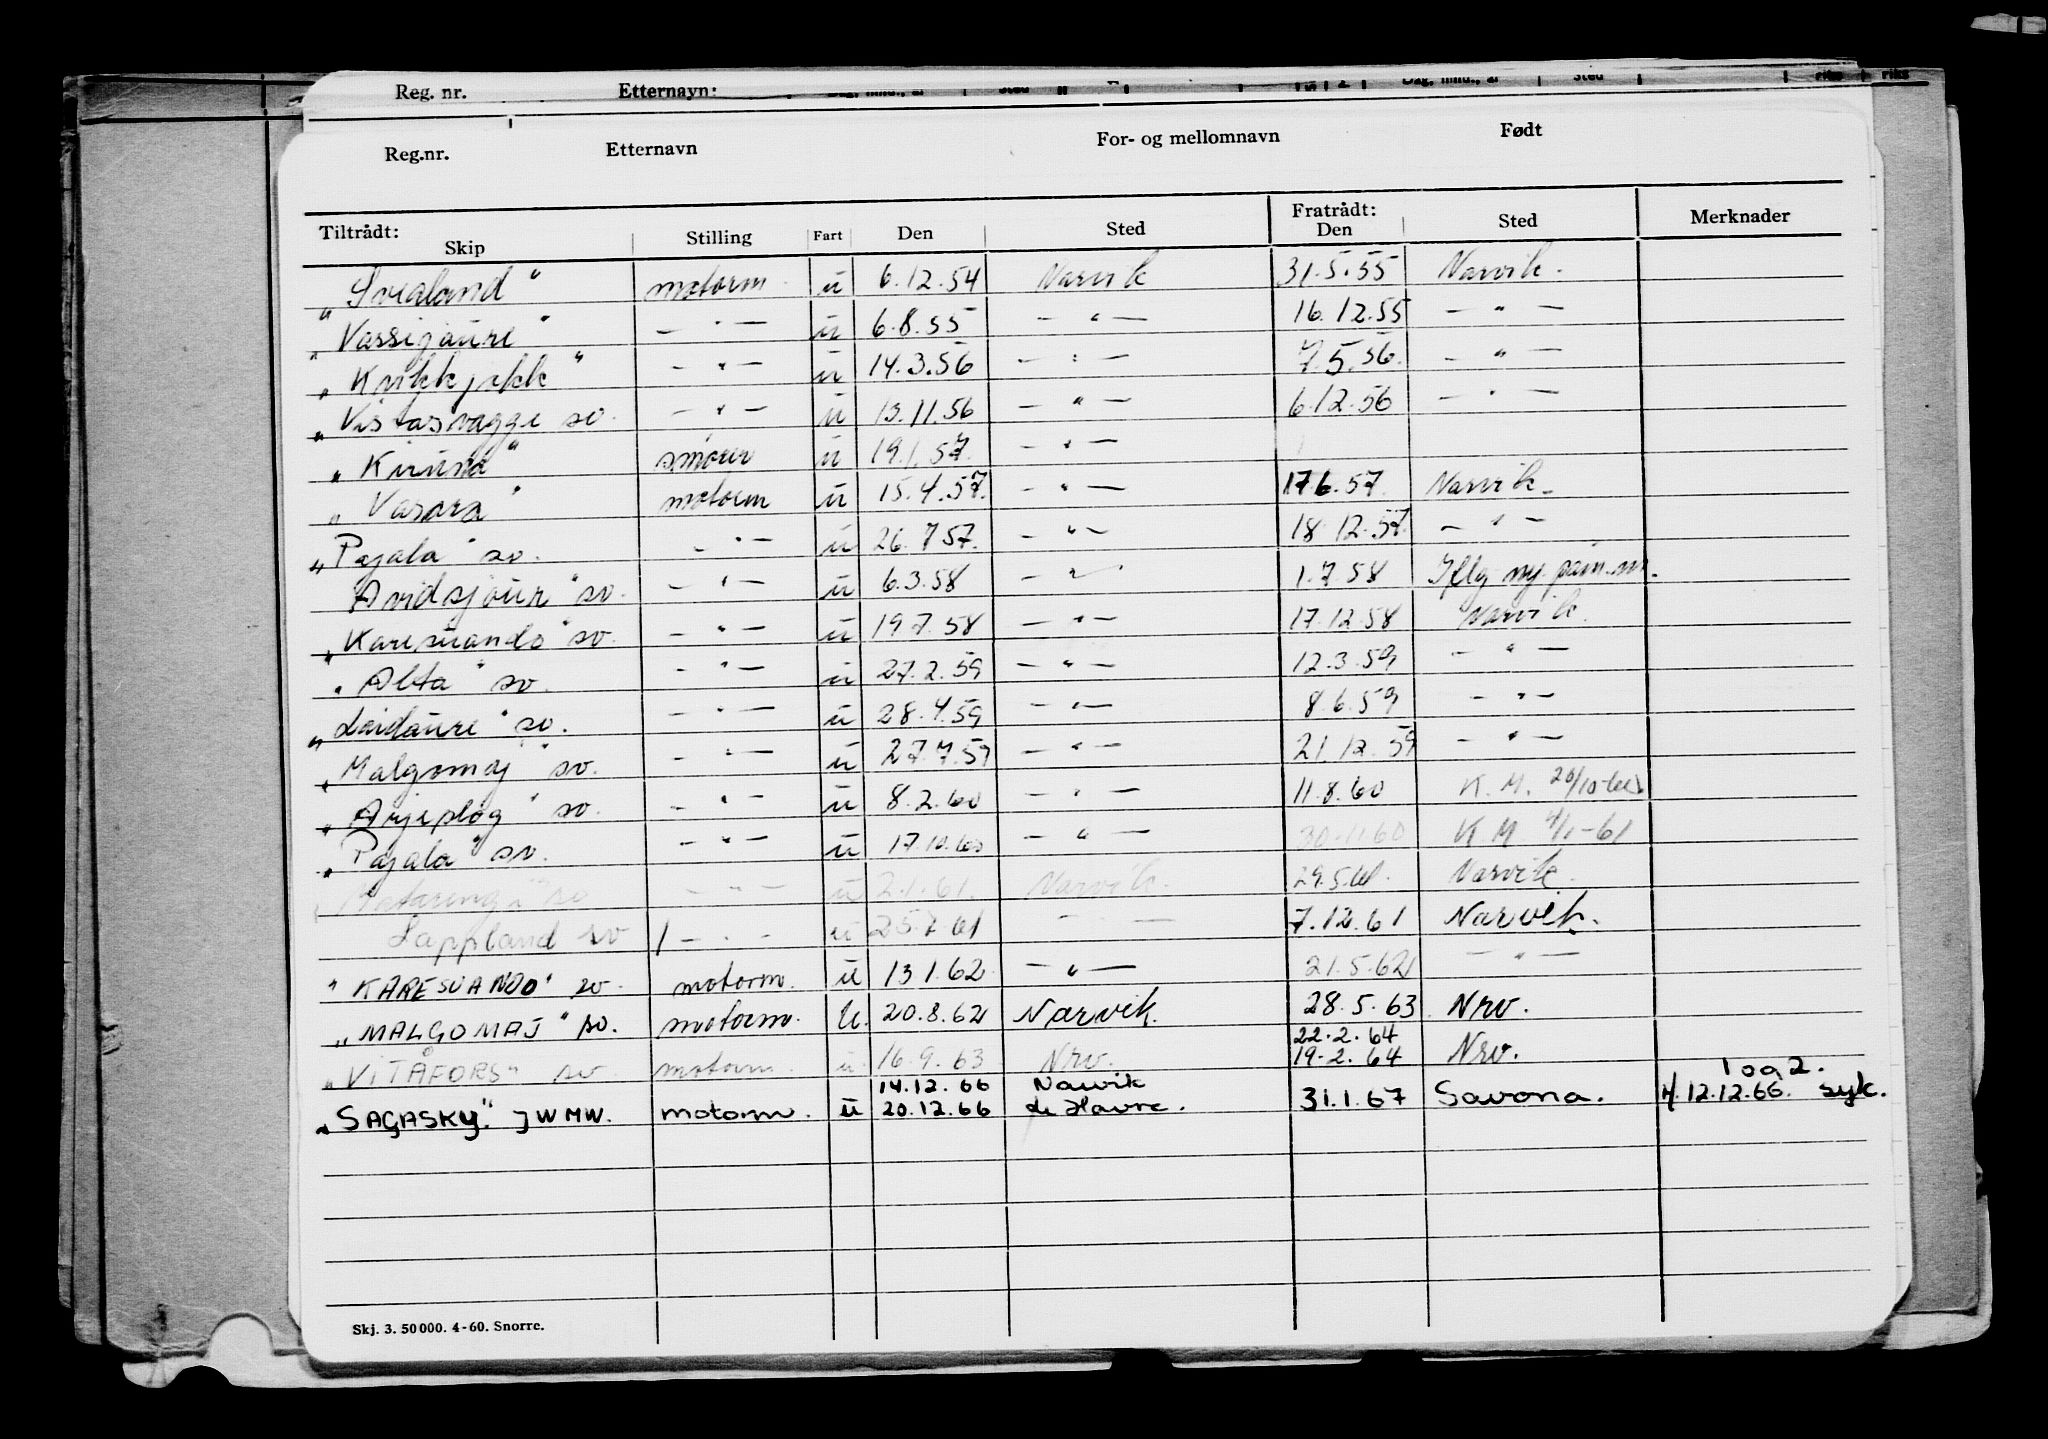 Reg. nr. Etternavn:
Reg.nr. Etternavn For- og mellomnavn Født
Tiltrådt: Skip Stilling Fart Den Sted Fratrådt: Den Sted Merknader
"Svealand" motorm. u 6.12.54 Narvik 31.5.55 Narvik.
"Vassijaure" — " — u 6.8.55 — " — 16.12.55 — " —
"Kvikkjokk" — " — u 14.3.56 — " — 7.5.56. — " —
"Vistasvagge sv. — " — u 13.11.56 — " — 6.12.56 — " —
"Kiruna" smører u 19.1.57. — " —
"Vasara" motorm u 15.4.57. — " — 17.6.57. Narvik.
"Pajala" sv. — " — u 26.7.57. — " — 18.12.57. — " —
Avidsjaur" sv. — " — u 6.3.58 — " — 1.7.58 Iflg ny. påm.
"Karesuando" sv. — " — u 19.7.58 — " — 17.12.58 Narvik.
"Abta" sv. — " — u 27.2.59 — " — 12.3.59 — " —
"Laidaure" sv. — " — u 28.4.59 — " — 8.6.59 — " —
"Malgomaj" sv. — " — u 27.7.59 — " — 21.12.59 — " —
"Arjeplog" sv. — " — u 8.2.60 — " — 11.8.60 K.M. 20/10-60
"Pajala" sv. — " — u 17.10.60 — " — 30.11.60 K M 4/1-61
sv — " — u 2.1.61. Narvik. 29.5.61. Narvik.
Lappland sv — " — u 25.7.61 — " — 7.12.61 Narvik.
"KARESUANDO" sv. motorm. u 13.1.62. — " — 21.5.62 — " —
"MALGOMAJ" sv. motorm. U. 20.8.62 Narvik. 28.5.63. Nrv.
22.2.64
"VITÅFORS" sv. motorm. u. 16.9.63 Nrv. 19.2.64 Nrv.
14.12.66 Narvik 1 og 2.
"SAGASKY". JWMW. motorm. u 20.12.66 Le Havre. 31.1.67 Savona. 12.12.66. syk.
Skj. 3. 50 000. 4-60. Snorre.